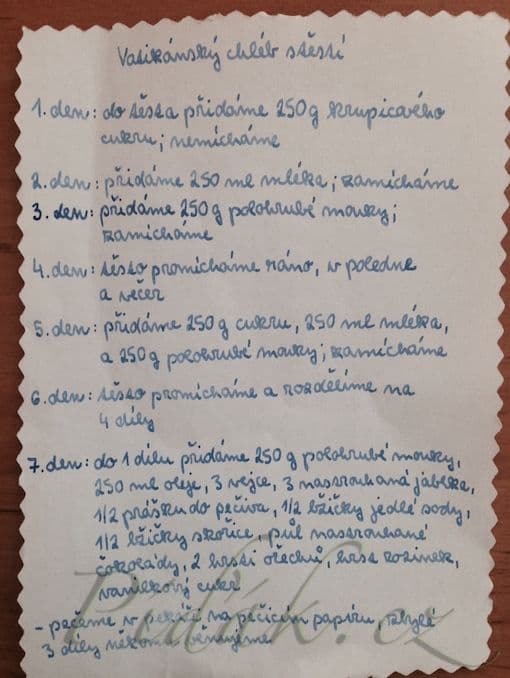 Vatikánský chléb štěstí
1. den: do těsta přidáme 250 g krupicového
cukru; nemícháme
2. den: přidáme 250 ml mléka; zamícháme
3. den: přidáme 250 g polohrubé mouky;
zamícháme
4. den: těsto promícháme ráno, v poledne
a večer
5. den: přidáme 250 g cukru, 250 ml mléka,
a 250 g polohrubé mouky; zamícháme
6. den: těsto promícháme a rozdělíme na
4 díly
7. den: do 1 dílu přidáme 250 g polohrubé mouky,
250 ml oleje, 3 vejce, 3 nastrouhaná jablka,
1/2 prášku do pečiva, 1/2 lžičky jedlé sody,
1/2 lžičky skořice, půl nastrouhané
čokolády, 2 hrsti ořechů, hrst rozinek,
vanilkový cukr
- pečeme v pekáči na pečicím papíru, zbylé
3 díly někomu věnujeme
Pidák.cz